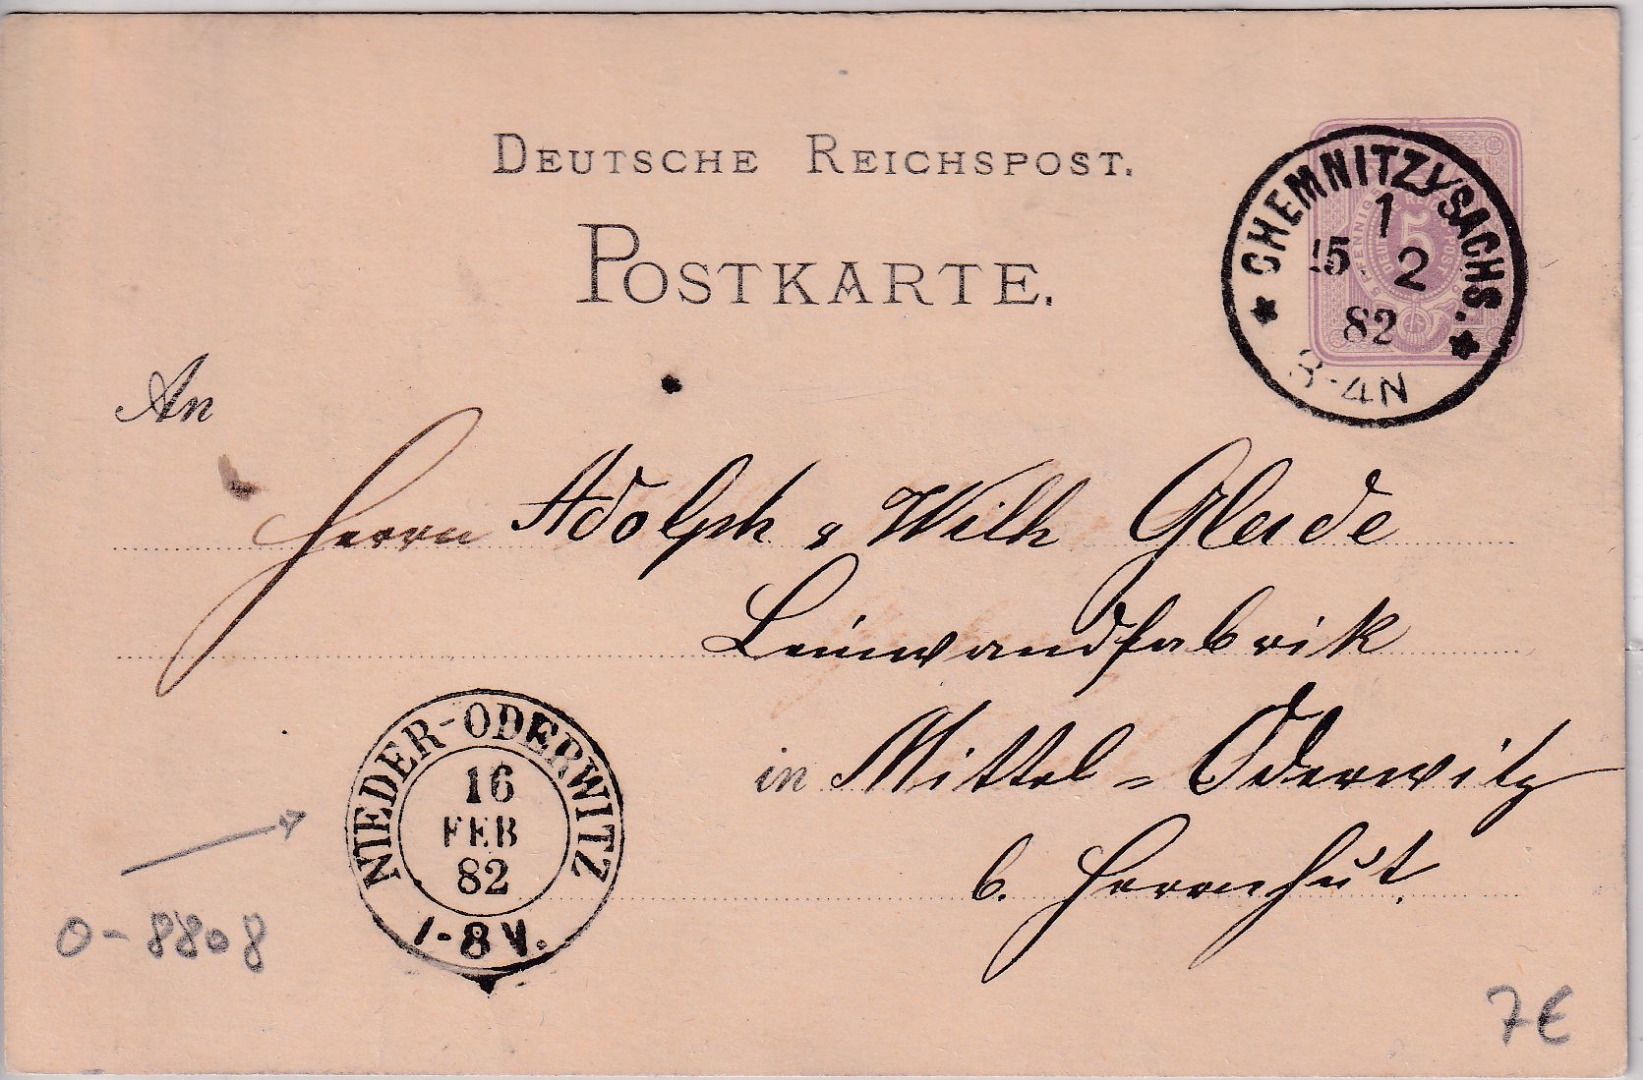 DEUTSCHE REICHSPOST.
POSTKARTE.
CHEMNITZ/SACHS.
1
15. 2
82
3-4N
5
An
Herrn Adolph & Wilh
Leinwandfabrik
in Mittel=Oderwitz
b. Herrnhut.
NIEDER-ODERWITZ
16
FEB
82
-8 V.
O-8808
7€